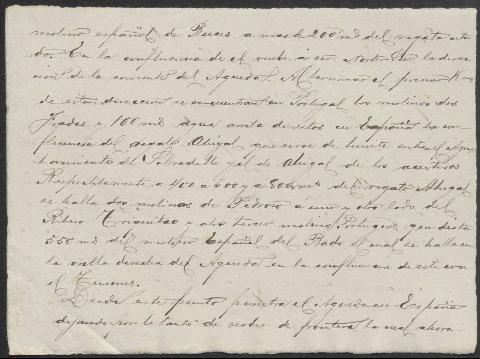 molino español de Buces a mas de 200 ms del regato cita
do. En la confluencia de el vuelve á ser Norte Sur la direc
cion de la corriente del Agueda. Al terminar el primer Km
de esta direccion se encuentran en Portugal los molinos dos
Frades y 100 ms agua arriba de estos en España la con
fluencia del regato Ahigal, que sirve de limite entre el Ayun
tamiento de Sobradillo y el de Ahigal de los aceiteros
Respectivamente a 400 a 600 y a 800 ms del regato Ahigal
se halla dos molinos de Pedro a uno y otro lado del
Ribero y otro tercer molino Portugues, que dista
550 ms del molino Español del Bado el cual se halla en
la orilla derecha del Agueda en la confluencia de este con
el Turones.
Desde este punto penetra el Agueda en España
dejando, por lo tanto de servir de frontera la cual ahora